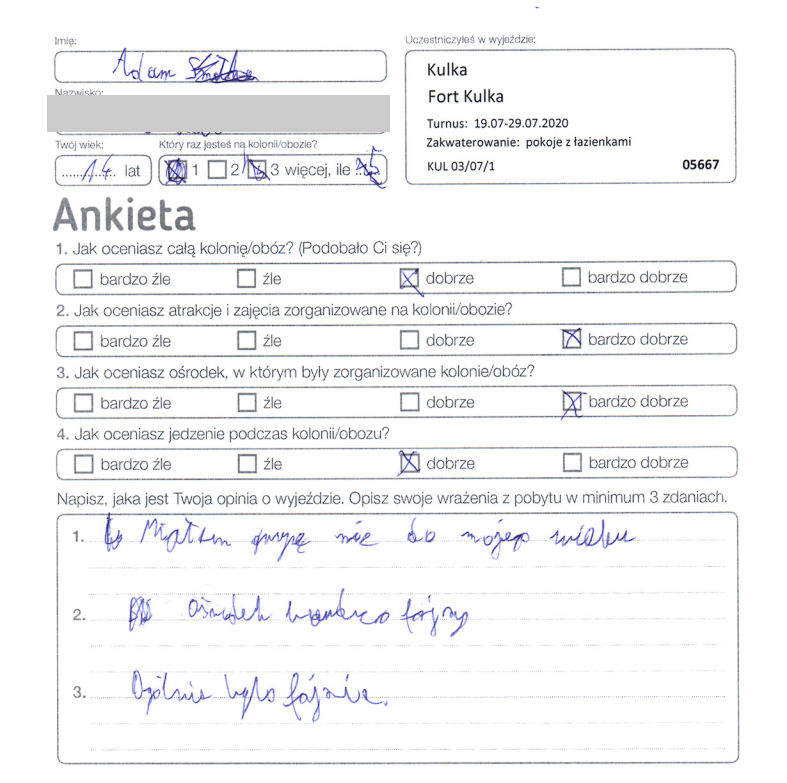 Imię:
Uczestniczyłeś w wyjeździe:
Adam
Kulka
Fort Kulka
Nazwisko:
Turnus: 19.07-29.07.2020
Zakwaterowanie: pokoje z łazienkami
KUL 03/07/1 05667
Twój wiek: Który raz jesteś na kolonii/obozie?
14 lat 1 2 3 więcej, ile 5
Ankieta
1. Jak oceniasz całą kolonię/obóz? (Podobało Ci się?)
bardzo źle źle dobrze bardzo dobrze
2. Jak oceniasz atrakcje i zajęcia zorganizowane na kolonii/obozie?
bardzo źle źle dobrze bardzo dobrze
3. Jak oceniasz ośrodek, w którym były zorganizowane kolonie/obóz?
bardzo źle źle dobrze bardzo dobrze
4. Jak oceniasz jedzenie podczas kolonii/obozu?
bardzo źle źle dobrze bardzo dobrze
Napisz, jaka jest Twoja opinia o wyjeździe. Opisz swoje wrażenia z pobytu w minimum 3 zdaniach.
1. Miałem grupę nie do mojego wieku
2. Ośrodek bardzo fajny
3. Ogólnie było fajnie.